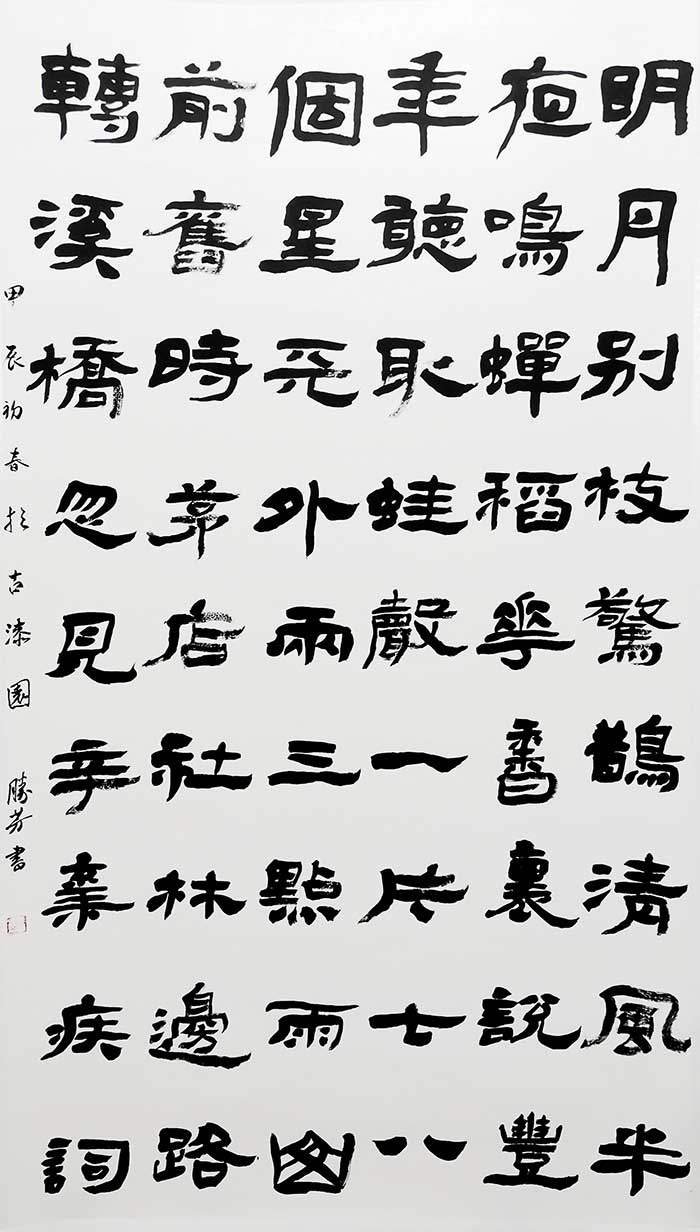 明月别枝驚鵲清風半
夜鳴蟬稻華香裏説豐
年聽取蛙聲一片七八
個星天外兩三點雨山
前舊時茅店社林邊路
轉溪橋忽見辛棄疾詞
甲辰初春於古漆園
勝芳書